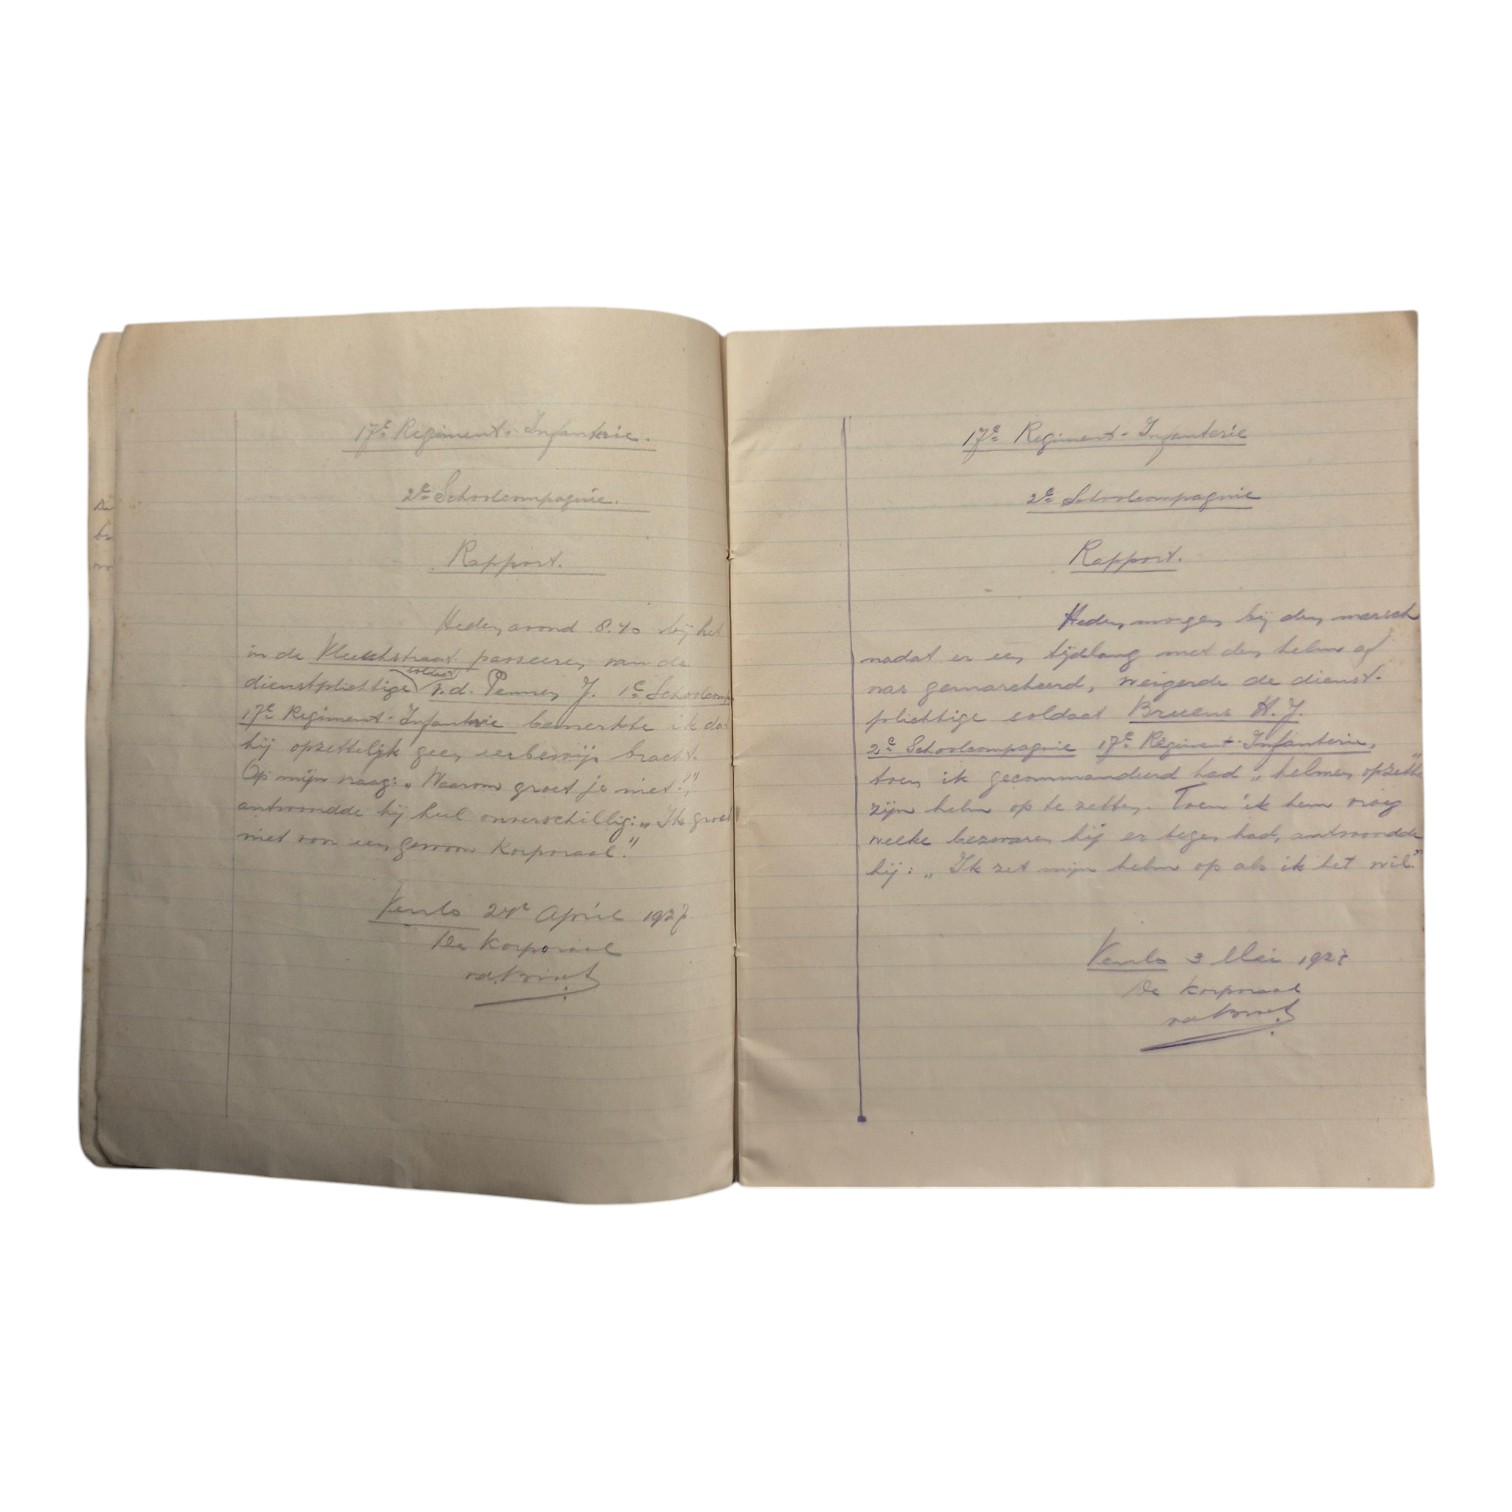 17e Regiment-Infanterie.
2e Schoolcompagnie.
Rapport.
Heden avond 8.40 bij het
in de Vleeschstraat passeeren van de
soldaat
dienstplichtige v.d. Pennen J. 1e Schoolcomp
17e Regiment-Infanterie bemerkte ik da
hij opzettelijk geen eerbewijs bracht.
Op mijn vraag: „Waarom groet je niet?”,
antwoordde hij heel onverschillig: „Ik groet
niet voor een gewoon Korporaal.”
Venlo 24 April 1927
De Korporaal
17e Regiment-Infanterie
2e Schoolcompagnie
Rapport.
Heden morgen bij den marsch
nadat er een tijdlang met den helm af
was gemarcheerd, weigerde de dienst-
plichtige soldaat Bruens H.J.
2e Schoolcompagnie 17e Regiment-Infanterie,
toen ik gecommandeerd had „helmen opzett”
zijn helm op te zetten. Toen ik hem vroeg
welke bezwaren hij er tegen had, antwoordde
hij: „Ik zet mijn helm op als ik het wil”
Venlo 3 Mei 1927
De Korporaal